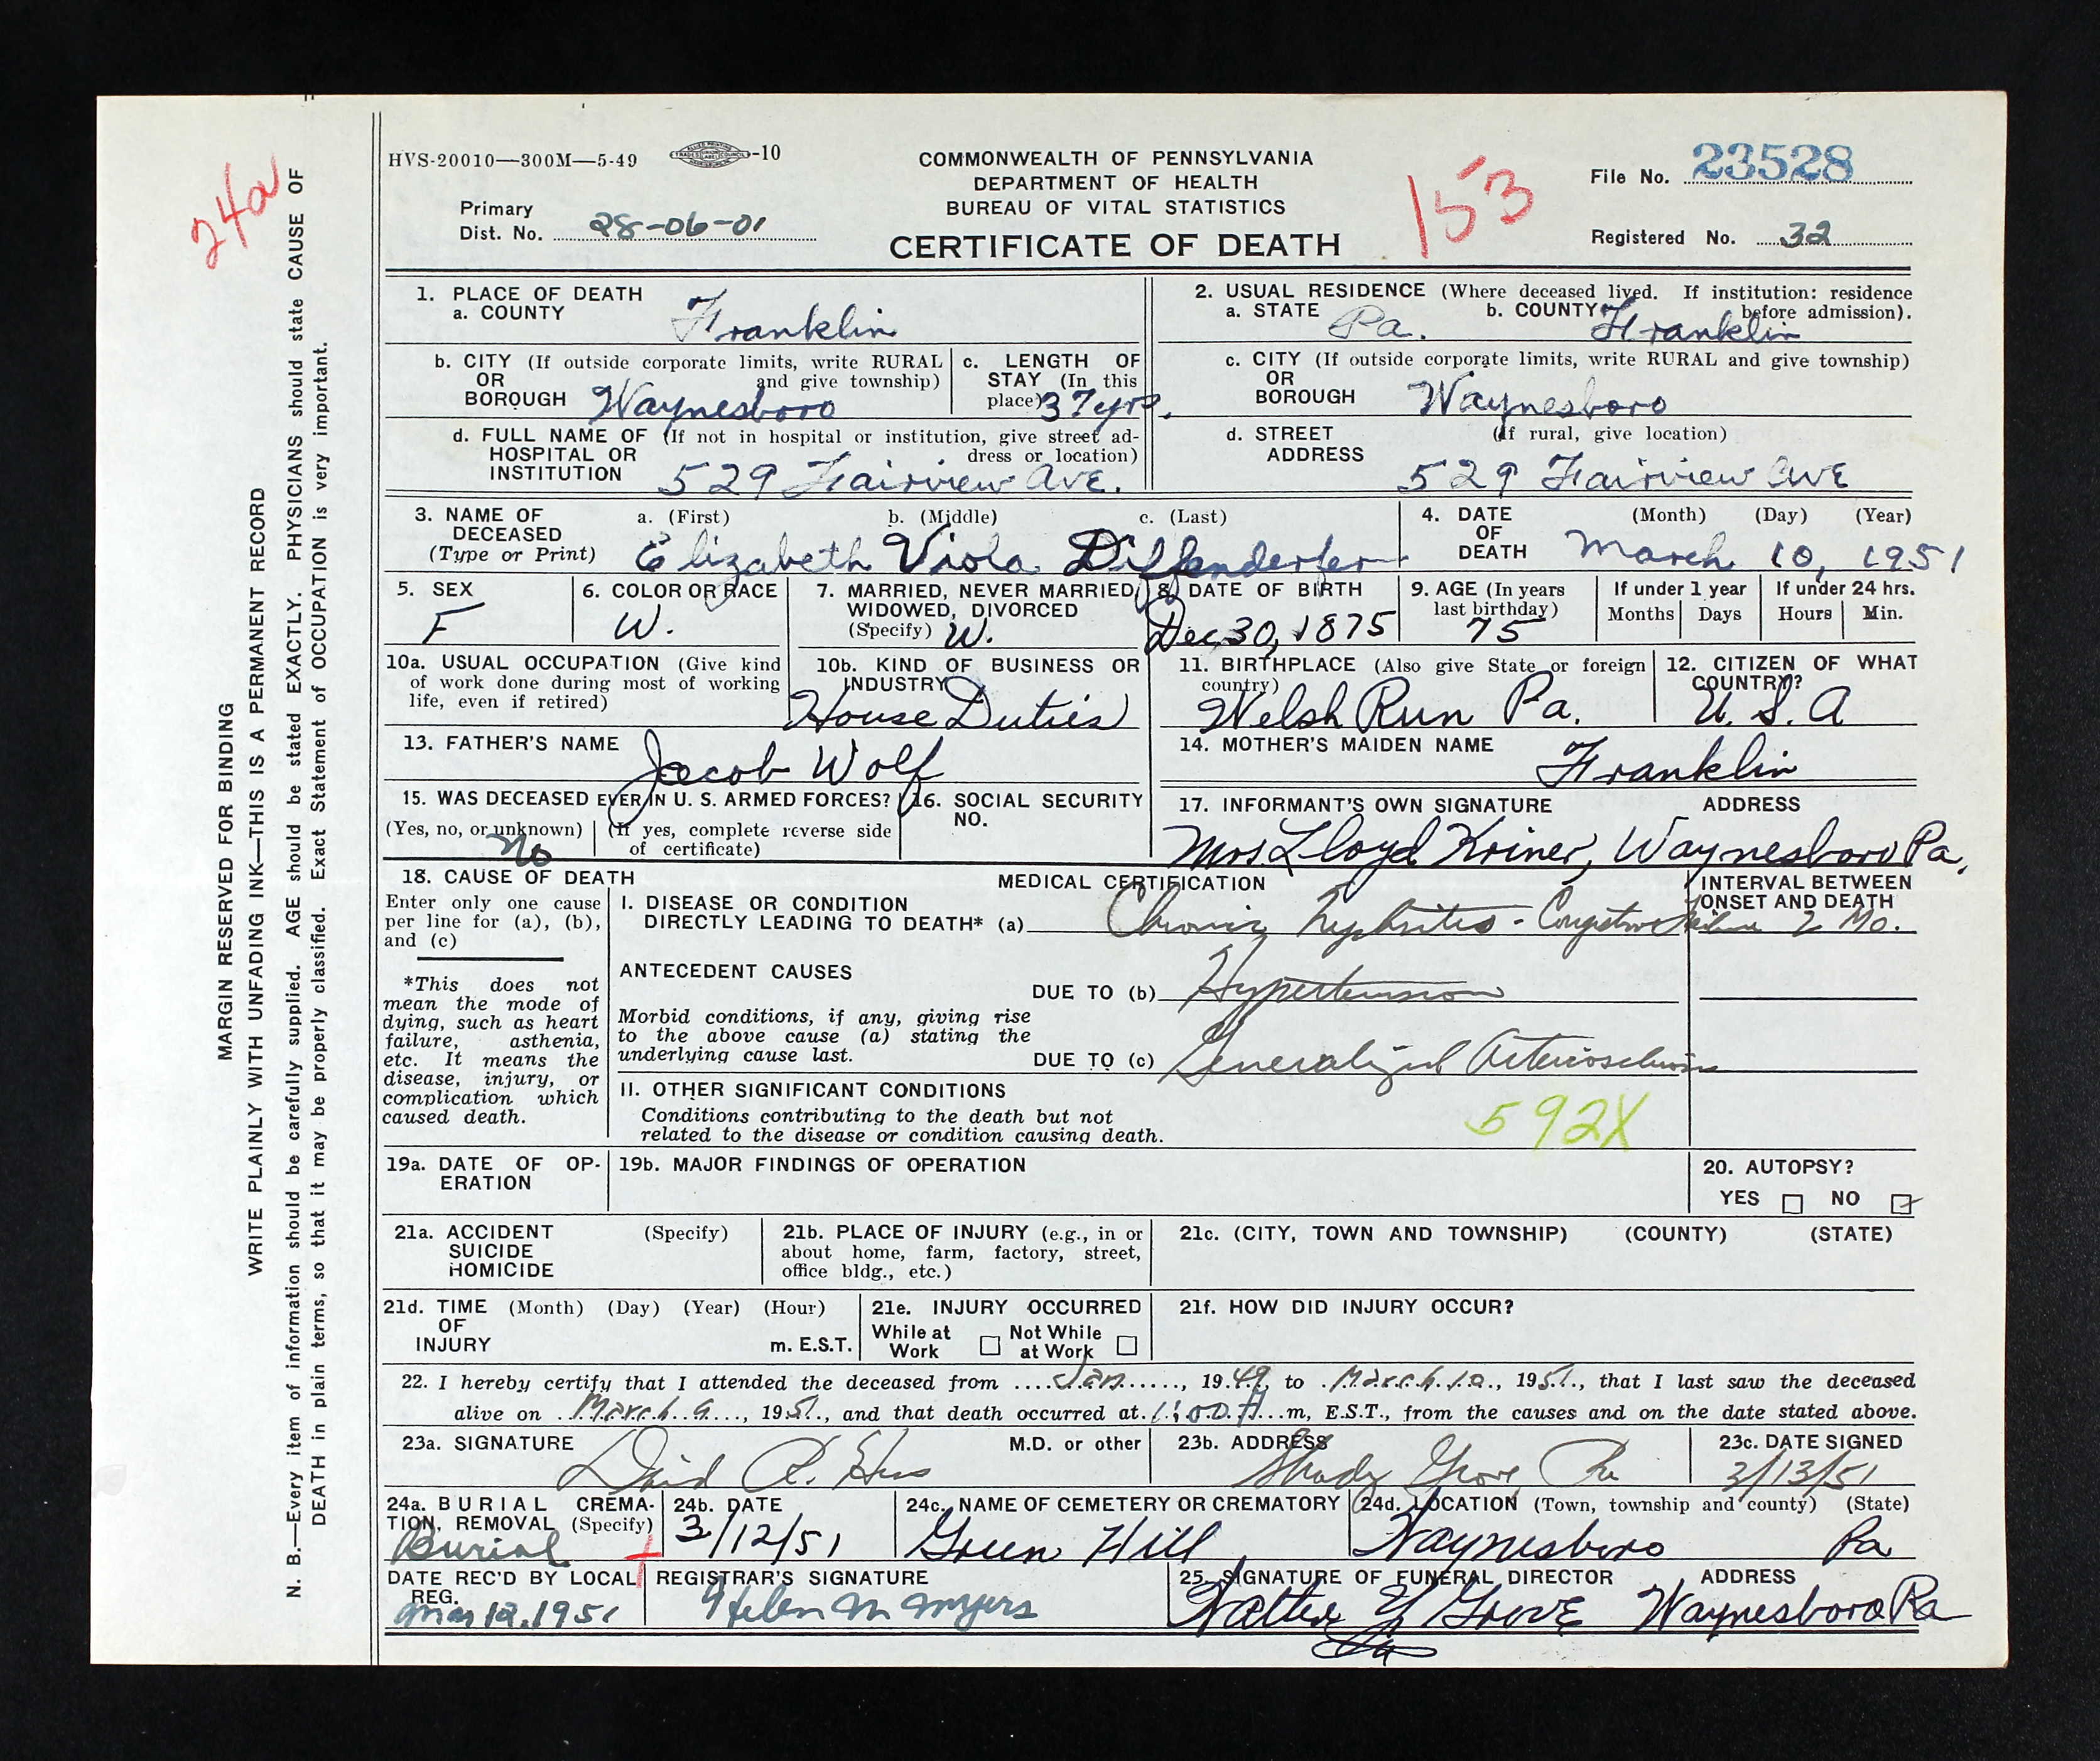 24a
MARGIN RESERVED FOR BINDING
WRITE PLAINLY WITH UNFADING INK—THIS IS A PERMANENT RECORD
N. B.—Every item of information should be carefully supplied. AGE should be stated EXACTLY. PHYSICIANS should state CAUSE OF
DEATH in plain terms, so that it may be properly classified. Exact Statement of OCCUPATION is very important.
HVS-20010—300M—5-49 -10
COMMONWEALTH OF PENNSYLVANIA
DEPARTMENT OF HEALTH
BUREAU OF VITAL STATISTICS
CERTIFICATE OF DEATH
153
File No. 23528
Primary
Dist. No. 28-06-01
Registered No. 32
1. PLACE OF DEATH
a. COUNTY Franklin
2. USUAL RESIDENCE (Where deceased lived. If institution: residence
before admission).
a. STATE Pa. b. COUNTY Franklin
b. CITY (If outside corporate limits, write RURAL
OR and give township)
BOROUGH Waynesboro
c. LENGTH OF
STAY (In this
place) 37 yrs.
c. CITY (If outside corporate limits, write RURAL and give township)
OR
BOROUGH Waynesboro
d. FULL NAME OF (If not in hospital or institution, give street ad-
HOSPITAL OR dress or location)
INSTITUTION 529 Fairview Ave.
d. STREET (If rural, give location)
ADDRESS 529 Fairview Ave
3. NAME OF a. (First) b. (Middle) c. (Last)
DECEASED
(Type or Print) Elizabeth Viola Diffenderfer
4. DATE (Month) (Day) (Year)
OF
DEATH March 10, 1951
5. SEX
F
6. COLOR OR RACE
W.
7. MARRIED, NEVER MARRIED,
WIDOWED, DIVORCED
(Specify) W.
8. DATE OF BIRTH
Dec. 30, 1875
9. AGE (In years
last birthday)
75
If under 1 year
Months Days
If under 24 hrs.
Hours Min.
10a. USUAL OCCUPATION (Give kind
of work done during most of working
life, even if retired)
10b. KIND OF BUSINESS OR
INDUSTRY
House Duties
11. BIRTHPLACE (Also give State or foreign
country)
Welsh Run Pa.
12. CITIZEN OF WHAT
COUNTRY?
U. S. A
13. FATHER'S NAME
Jacob Wolf
14. MOTHER'S MAIDEN NAME
Franklin
15. WAS DECEASED EVER IN U. S. ARMED FORCES?
(Yes, no, or unknown) (If yes, complete reverse side
of certificate)
No
16. SOCIAL SECURITY
NO.
17. INFORMANT'S OWN SIGNATURE ADDRESS
Mrs. Lloyd Kriner, Waynesboro Pa.
18. CAUSE OF DEATH
Enter only one cause
per line for (a), (b),
and (c)
*This does not
mean the mode of
dying, such as heart
failure, asthenia,
etc. It means the
disease, injury, or
complication which
caused death.
MEDICAL CERTIFICATION
INTERVAL BETWEEN
ONSET AND DEATH
I. DISEASE OR CONDITION
DIRECTLY LEADING TO DEATH* (a) Chronic Nephritis - Congestive Failure 2 Mo.
ANTECEDENT CAUSES
DUE TO (b) Hypertension
Morbid conditions, if any, giving rise
to the above cause (a) stating the
underlying cause last.
DUE TO (c) Generalized Arteriosclerosis
II. OTHER SIGNIFICANT CONDITIONS
Conditions contributing to the death but not
related to the disease or condition causing death.
592X
19a. DATE OF OP-
ERATION
19b. MAJOR FINDINGS OF OPERATION
20. AUTOPSY?
YES NO
21a. ACCIDENT (Specify)
SUICIDE
HOMICIDE
21b. PLACE OF INJURY (e.g., in or
about home, farm, factory, street,
office bldg., etc.)
21c. (CITY, TOWN AND TOWNSHIP) (COUNTY) (STATE)
21d. TIME (Month) (Day) (Year) (Hour)
OF
INJURY m. E.S.T.
21e. INJURY OCCURRED
While at Not While
Work at Work
21f. HOW DID INJURY OCCUR?
22. I hereby certify that I attended the deceased from Jan, 1949, to March 10, 1951, that I last saw the deceased
alive on March 9, 1951, and that death occurred at 1:00 A m, E.S.T., from the causes and on the date stated above.
23a. SIGNATURE M.D. or other
David R. Hess
23b. ADDRESS
Shady Grove Pa
23c. DATE SIGNED
3/13/51
24a. BURIAL CREMA-
TION, REMOVAL (Specify)
Burial
24b. DATE
3/12/51
24c. NAME OF CEMETERY OR CREMATORY
Green Hill
24d. LOCATION (Town, township and county) (State)
Waynesboro Pa
DATE REC'D BY LOCAL
REG.
Mar 12, 1951
REGISTRAR'S SIGNATURE
Helen M Myers
25. SIGNATURE OF FUNERAL DIRECTOR ADDRESS
Walter Y Grove Waynesboro Pa